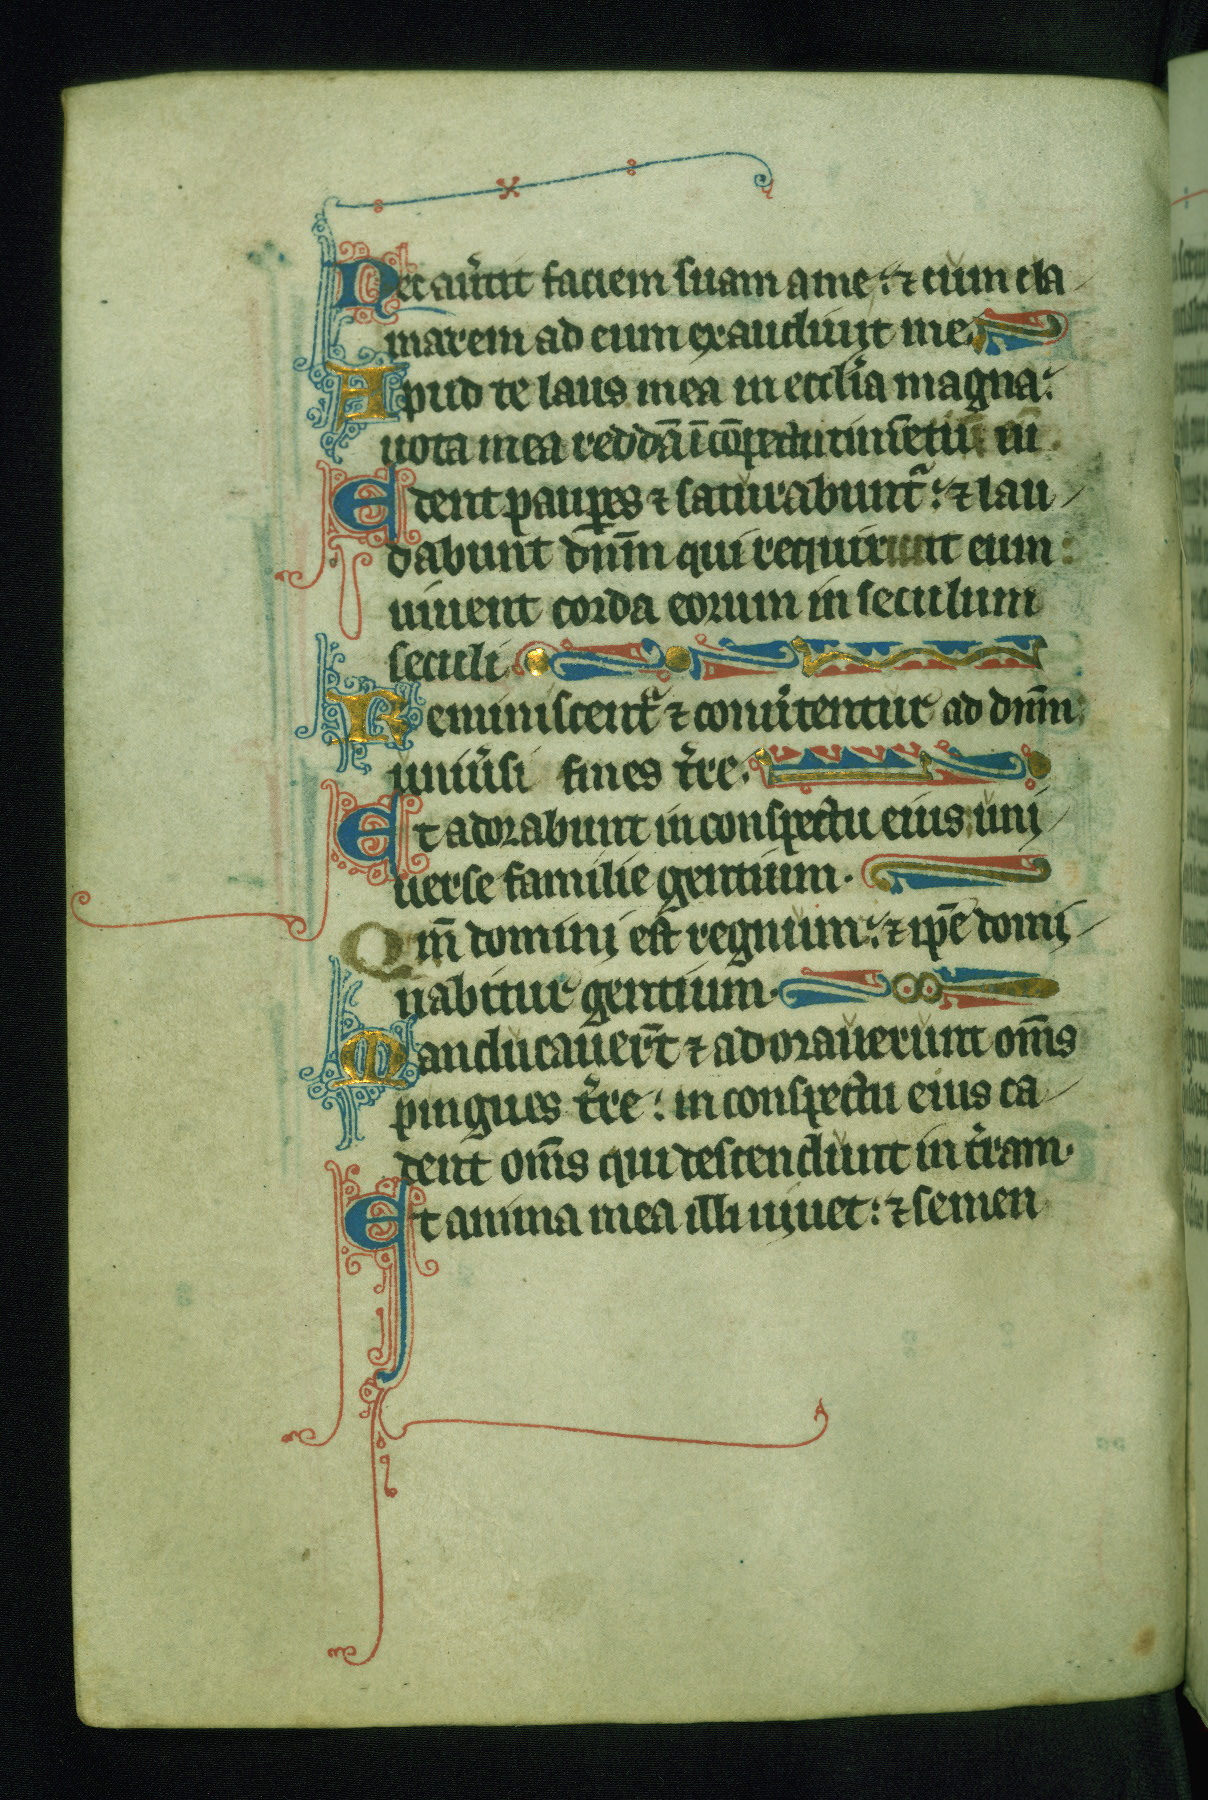 Nec aũtit faciem suam a me: ⁊ cum cla
marem ad eum exaudiuit me.
Apud te laus mea in ecclĩa magna:
uota mea reddã ĩ cõspectu timẽtiũ
Edent paupes ⁊ saturabunt̃: ⁊ lau
dabunt dñm qui requirunt eum:
uiuent corda eorum in seculum
seculi
Reminiscent̃ ⁊ conũtentur ad dñm
uniũsi fines t̃re.
Et adorabunt in conspectu eius uni
uerse familie gentium.
Qm̃ domini est regnum: ⁊ ip̃e domi
nabitur gentium.
Manducauer̃t ⁊ adorauerunt om̃s
pingues t̃re: in conspectu eius ca
dent om̃s qui descendunt in t̃ram.
Et anima mea illi uiuet: ⁊ semen